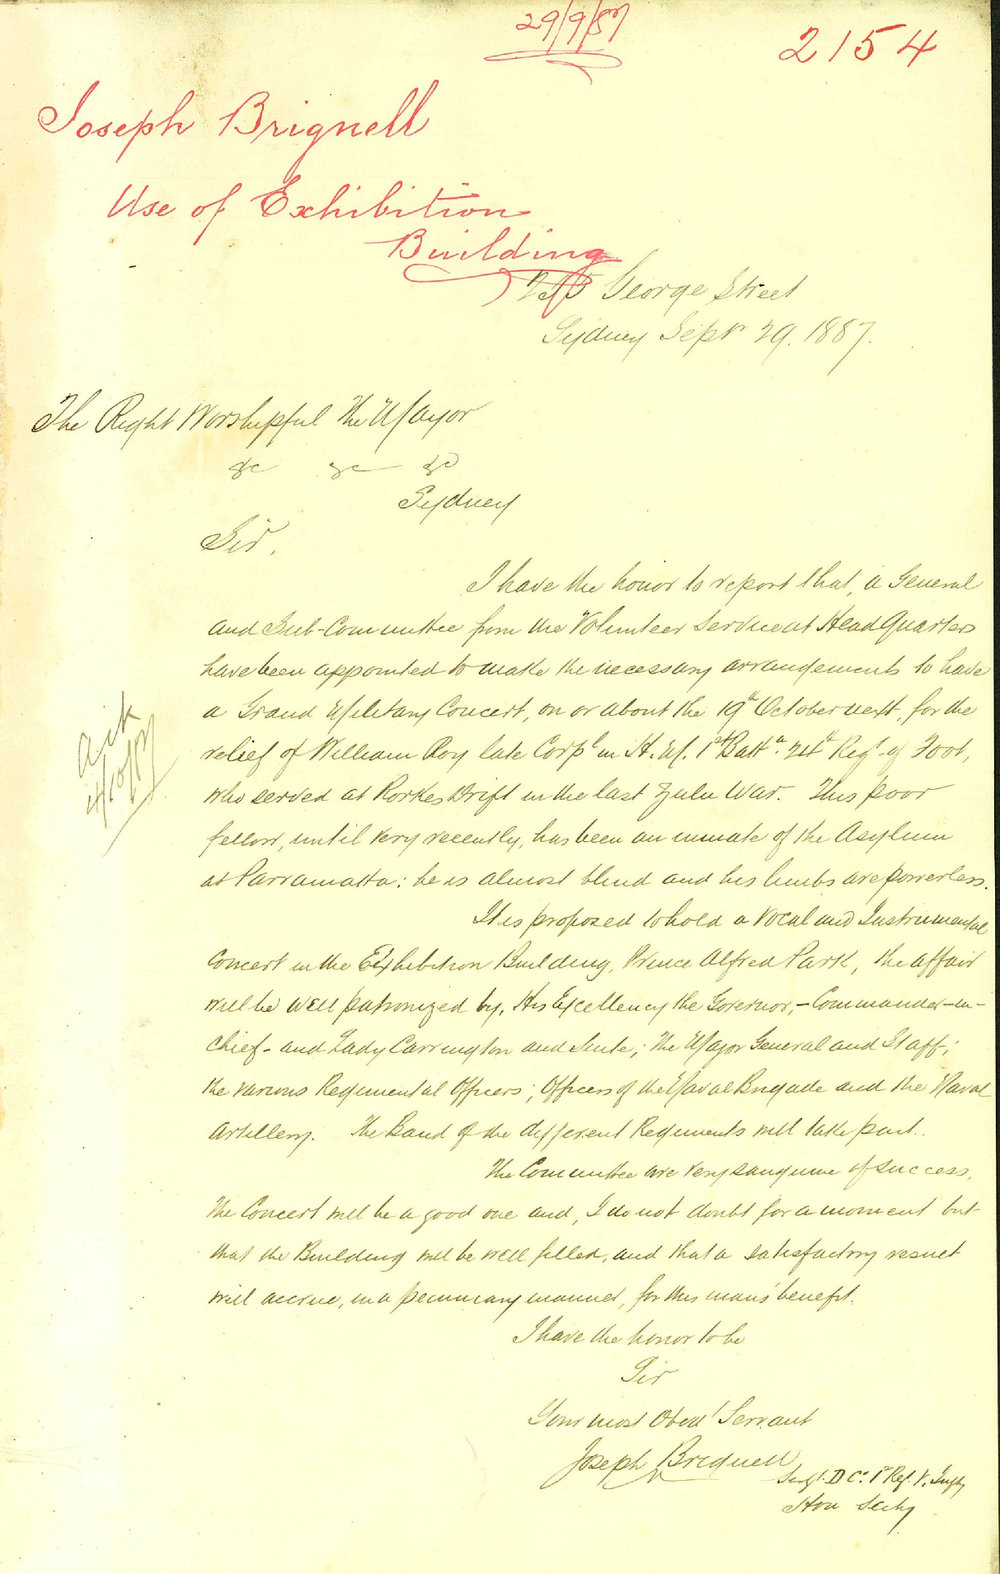 29/9/87
2154
Joseph Brignell
Use of Exhibition
Building
George Street
Sydney Sepr 29. 1887.
The Right Worshipful The Mayor
&c &c &c
Sydney
Sir,
I have the honor to report that, a General
and Sub-Committee from the Volunteer Service at Head Quarters
have been appointed to make the necessary arrangements to have
a Grand Military Concert, on or about the 19th October next, for the
relief of William Roy late Corpl in H.M. 1st Battn. 24th Regt of Foot,
who served at Rorkes Drift in the last Zulu War. This poor
fellow, until very recently, has been an inmate of the Asylum
at Parramatta: he is almost blind and his limbs are powerless.
It is proposed to hold a Vocal and Instrumental
Concert in the Exhibition Building, Prince Alfred Park, the affair
will be well patronized by, His Excellency the Governor, - Commander-in-
Chief - and Lady Carrington and Suite; The Major General and Staff;
the various Regimental Officers; Officers of the Naval Brigade and the Naval
Artillery. The Band of the different Regiments will take part.
The Committee are very sanguine of success,
the Concert will be a good one and, I do not doubt for a moment but
that the Building will be well filled, and that a satisfactory result
will accrue, in a pecuniary manner, for this man's benefit.
I have the honor to be
Sir
Your most Obedt Servant
Joseph Brignell
Sergt. D Co. 1st Regt V. Infty
Hon Secty
Ack
4/10/87